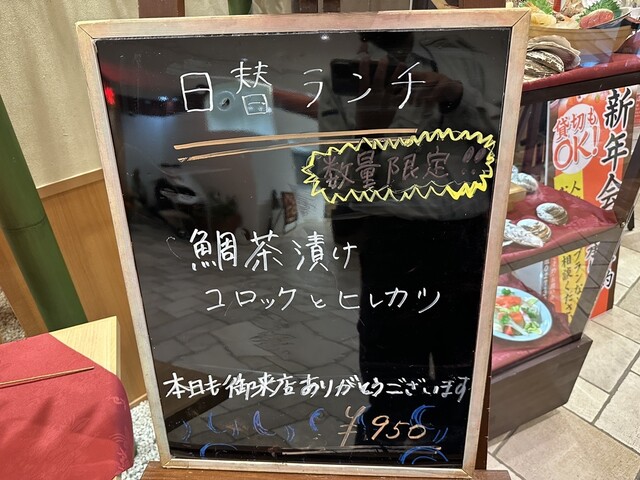 日替ランチ
数量限定!!
鯛茶漬け
ユロックとヒレカツ
本日も御来店ありがとうございます
¥950
貸切も
OK!
新年会
プランが
相談くださ